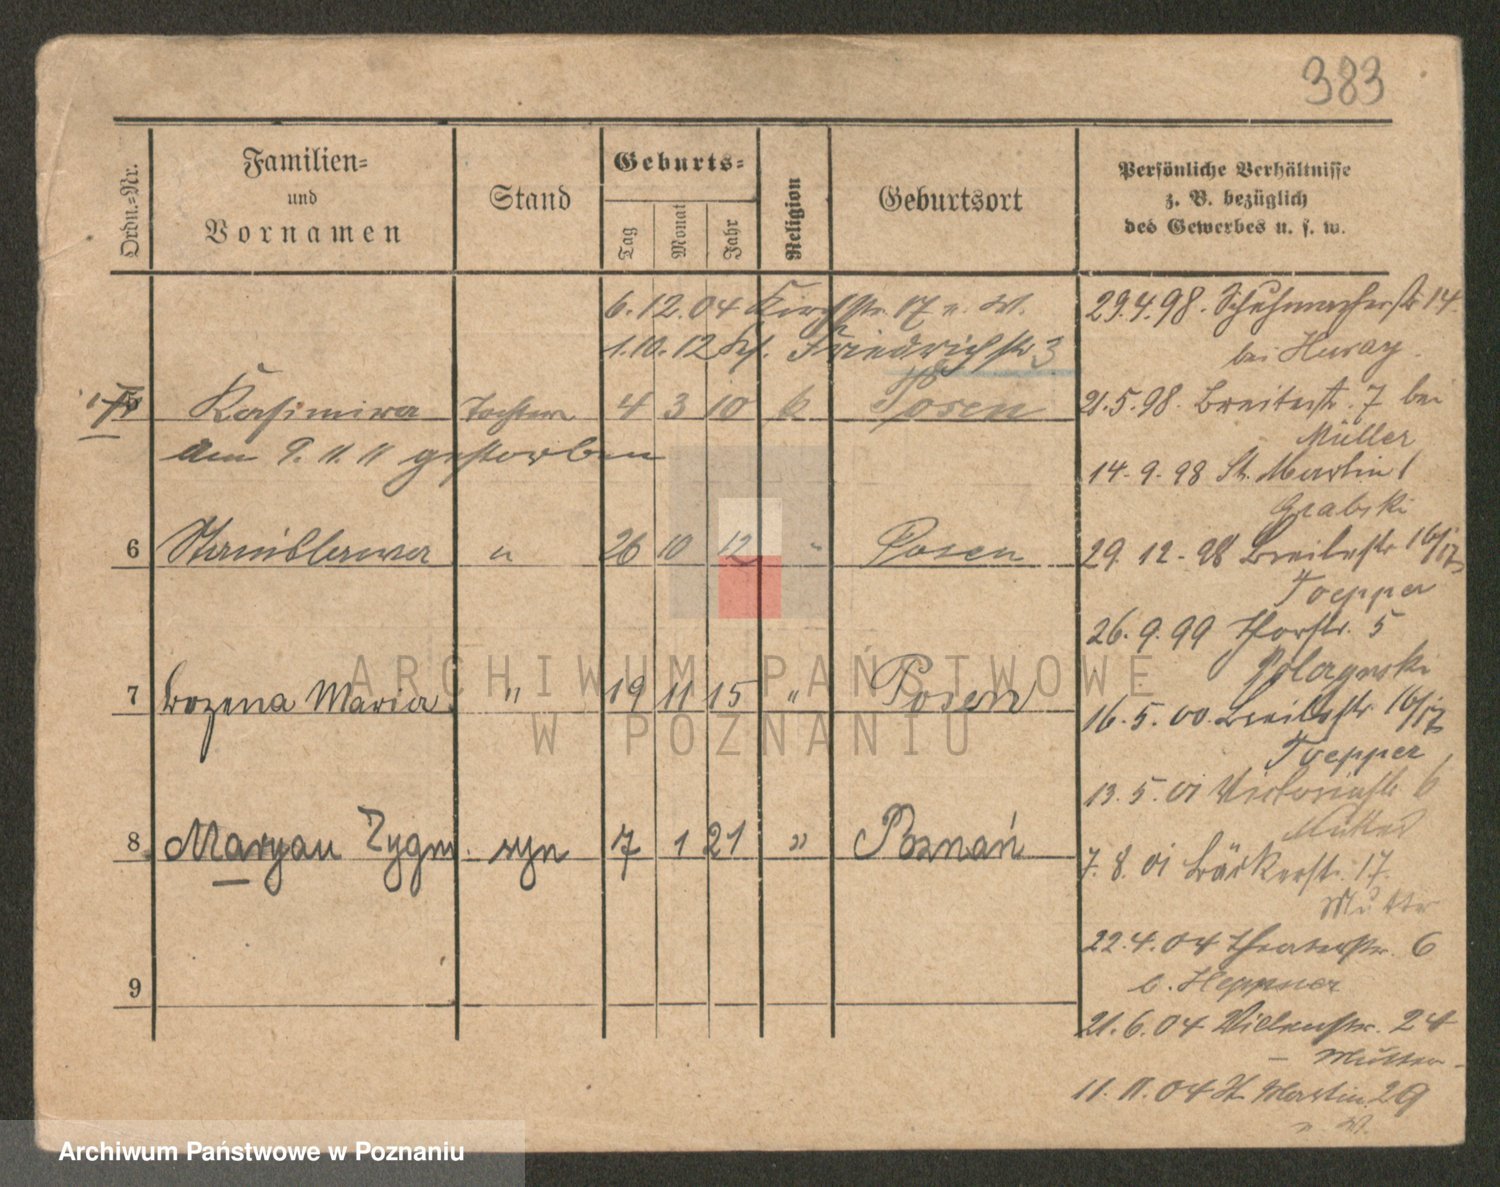 383
Ordn.-Nr.
Familien-
und
Vornamen
Stand
Geburts-
Tag
Monat
Jahr
Religion
Geburtsort
Persönliche Verhältnisse
z. B. bezüglich
des Gewerbes u. s. w.
6.12.04 Kirchstr. 17 n. W.
1.10.12 Friedrichstr 3
5 Kasimira Tochter 4 3 10 k Posen
am 9.11.11 gestorben
6 Stanislawa " 26 10 12 " Posen
7 Bozena Maria " 19 11 15 " Posen
8 Maryan Zygm. syn 7 1 21 " Poznań
9
29.4.98. Schuhmacherstr 14.
bei
21.5.98. Breitestr. 7 bei
Müller
14.9.98 St. Martin 1
Grabski
29.12.98 Breitestr 16/17
Toepper
26.9.99 Thorstr. 5
16.5.00. Breitestr. 16/17
Toepper
13.5.01 Victoriastr 6
Mutter
7.8.01 Bäckerstr. 17.
Mutter
22.4.04 Theaterstr. 6
b. Heppner
21.6.04 Wiesenstr. 24
– Mutter –
11.11.04 St. Martin 29
n. W.
ARCHIWUM PAŃSTWOWE
W POZNANIU
Archiwum Państwowe w Poznaniu